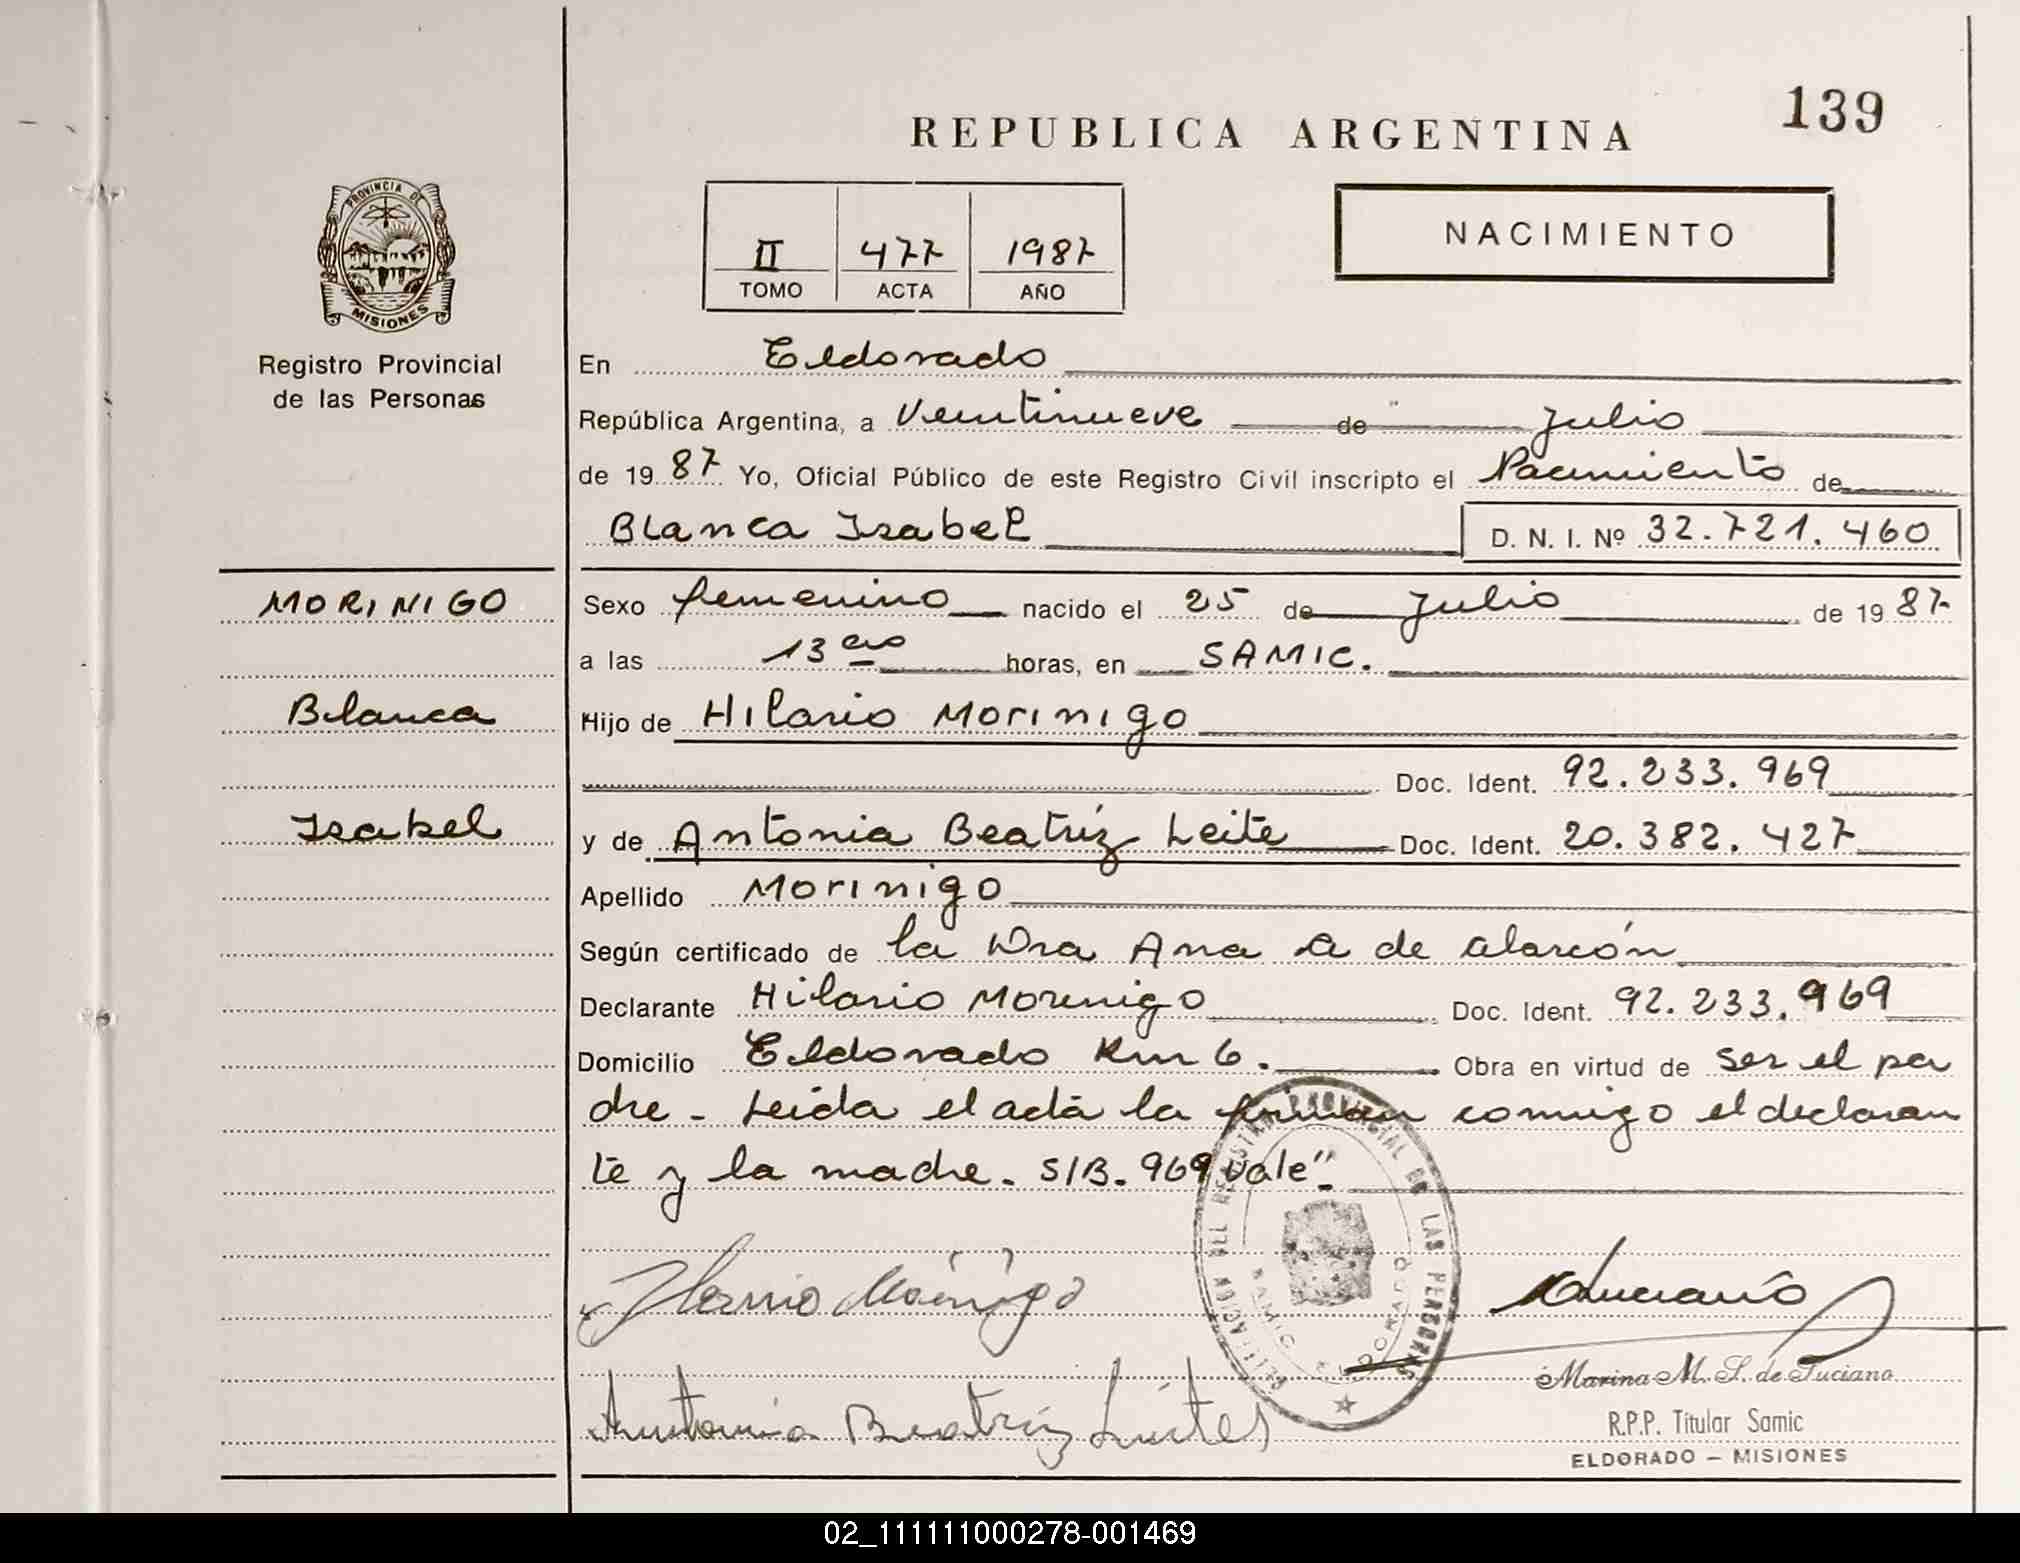 139
REPUBLICA ARGENTINA
PROVINCIA DE
MISIONES
Registro Provincial
de las Personas
II 477 1987
TOMO ACTA AÑO
NACIMIENTO
En Eldorado
República Argentina, a Veintinueve de Julio
de 1987 Yo, Oficial Público de este Registro Civil inscripto el Nacimiento de
Blanca Isabel D. N. I. Nº 32.721.460
MORINIGO
Blanca
Isabel
Sexo femenino nacido el 25 de Julio de 1987
a las 13 horas, en SAMIC.
Hijo de Hilario Morinigo
Doc. Ident. 92.233.969
y de Antonia Beatriz Leite Doc. Ident. 20.382.427
Apellido Morinigo
Según certificado de la Dra Ana A de Alarcón
Declarante Hilario Morinigo Doc. Ident. 92.233.969
Domicilio Eldorado Km 6. Obra en virtud de ser el pa
dre - Leida el acta la firman conmigo el declaran
te y la madre. S/B. 969 Vale"
DELEGACION DEL REGISTRO PROVINCIAL DE LAS PERSONAS
SAMIC ELDORADO
Hilario Morinigo
Luciano
Antonia Beatriz Leites
Marina M. S. de Luciano
R.P.P. Titular Samic
ELDORADO — MISIONES
02_111111000278-001469